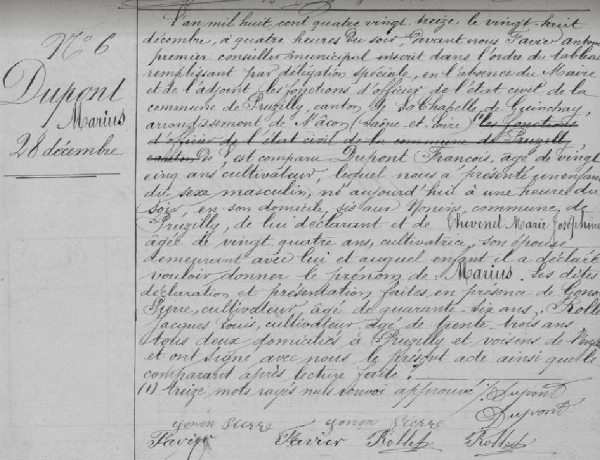 N° 6
Dupont
Marius
28 décembre
L'an mil huit cent quatre vingt treize le vingt-huit
décembre, à quatre heures du soir, devant nous Favier antoine
premier conseiller municipal inscrit dans l'ordre du tableau
remplissant par délégation spéciale, en l'absence du Maire
et de l'adjoint les fonctions d'officier de l'état civil de la
commune de Pruzilly, canton de La Chapelle de Guinchay,
arrondissement de Mâcon (Saône et Loire) les fonctions
d'officier de l'état civil de la commune de Pruzilly
canton D est comparu Dupont François, agé de vingt
cinq ans cultivateur, lequel nous a présenté un enfant
du sexe masculin, né aujourd'hui à une heure du
soir, en son domicile, sis aux, commune de
Pruzilly, de lui déclarant et de Thevenet Marie Joséphine
âgée de vingt quatre ans, cultivatrice, son épouse
demeurant avec lui et auquel enfant il a déclaré
vouloir donner le prénom de Marius. Les dites
déclaration et présentation faites en présence de Gonon
Pierre, cultivateur, âgé de quarante six ans, Rollet
Jacques Louis, cultivateur, âgé de trente trois ans
tous deux domiciliés à Pruzilly et voisins de
et ont signé avec nous le présent acte ainsi que le
comparant après lecture faite.
(1) treize mots rayés nuls renvoi approuvé Dupont
Dupont
gonon Pierre gonon Pierre
Favier Favier Rollet Rollet